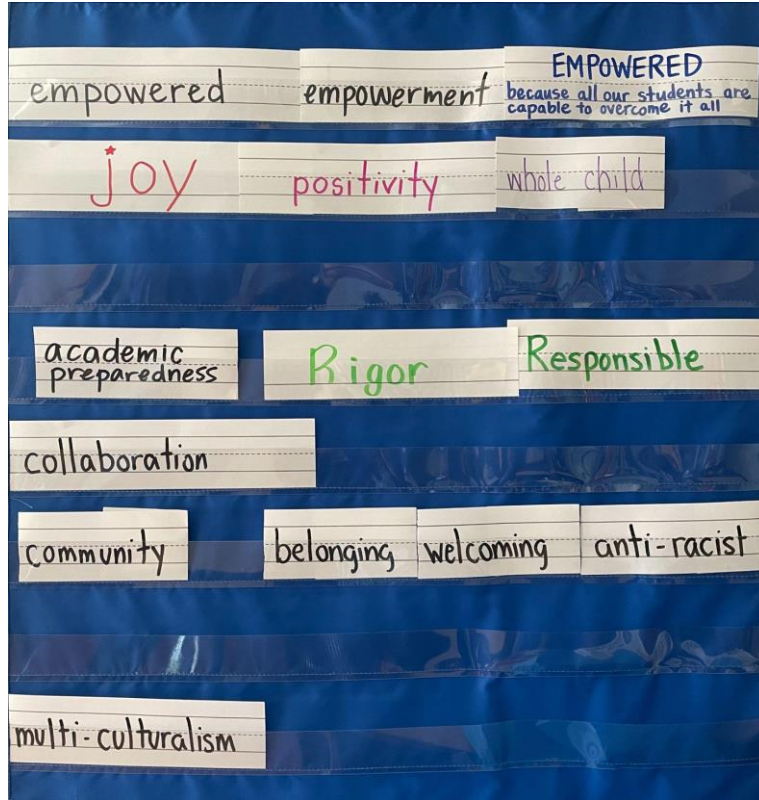 empowered empowerment EMPOWERED
because all our students are
capable to overcome it all
joy positivity whole child
academic
preparedness
Rigor Responsible
collaboration
community belonging welcoming anti-racist
multi-culturalism